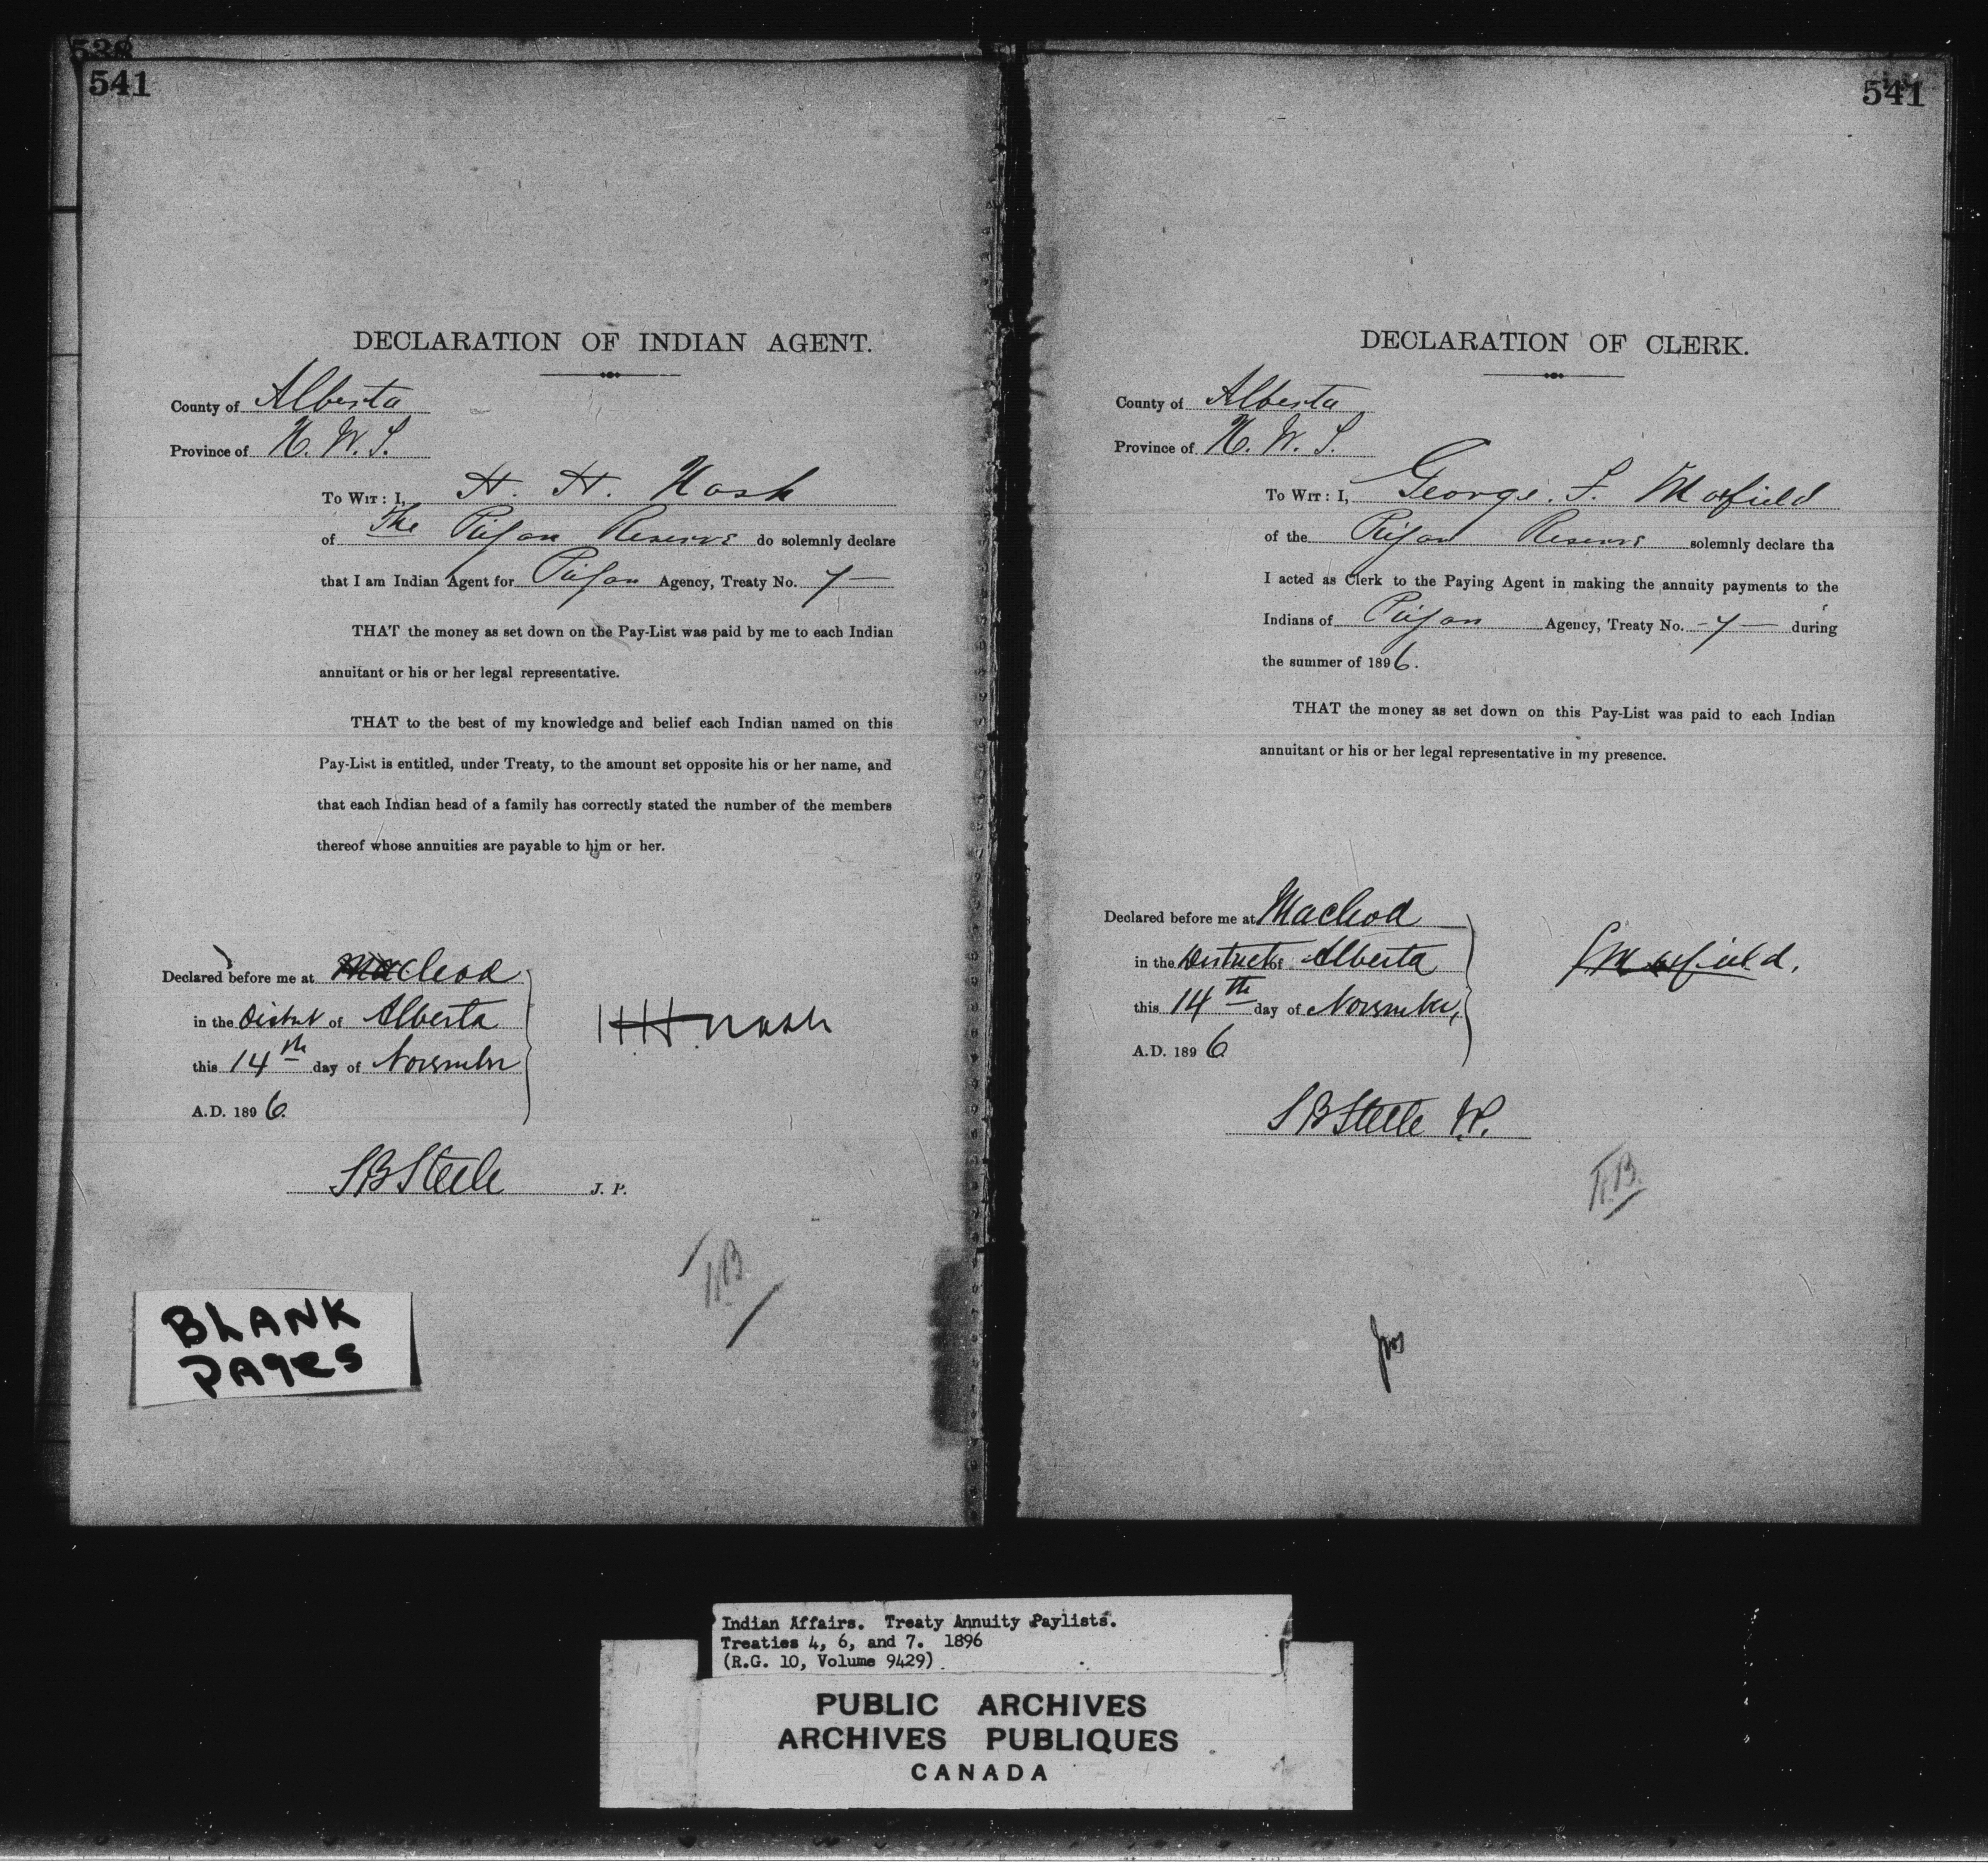 541
DECLARATION OF INDIAN AGENT.
County of Alberta
Province of N. W. T.
To Wit: I, H. H. Nash
of The Peigan Reserve do solemnly declare
that I am Indian Agent for Peigan Agency, Treaty No. 7—
THAT the money as set down on the Pay-List was paid by me to each Indian
annuitant or his or her legal representative.
THAT to the best of my knowledge and belief each Indian named on this
Pay-List is entitled, under Treaty, to the amount set opposite his or her name, and
that each Indian head of a family has correctly stated the number of the members
thereof whose annuities are payable to him or her.
Declared before me at Macleod
in the District of Alberta
this 14th day of November
A.D. 1896.
HH Nash
SB Steele J. P.
BLANK
PAges
541
DECLARATION OF CLERK.
County of Alberta
Province of N. W. T.
To Wit: I, George. F. Maxfield
of the Peigan Reserve solemnly declare tha
I acted as Clerk to the Paying Agent in making the annuity payments to the
Indians of Peigan Agency, Treaty No. -7- during
the summer of 1896.
THAT the money as set down on this Pay-List was paid to each Indian
annuitant or his or her legal representative in my presence.
Declared before me at Macleod
in the District of Alberta
this 14th day of November,
A.D. 1896
Maxfield.
SB Steele J.P.
Indian Affairs. Treaty Annuity Paylists.
Treaties 4, 6, and 7. 1896
(R.G. 10, Volume 9429)
PUBLIC ARCHIVES
ARCHIVES PUBLIQUES
CANADA